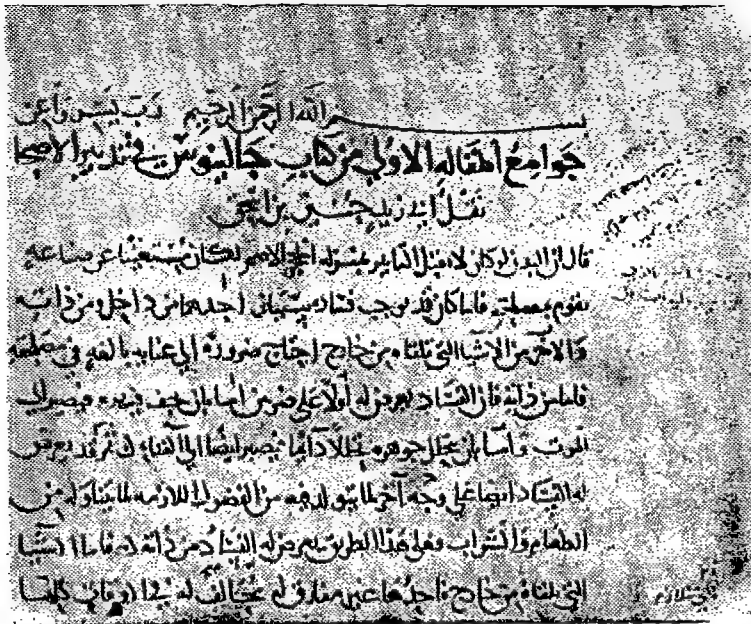 بسم الله الرحمن الرحيم رب يسر واعن
جوامع المقالة الاولى من كتاب جالينوس في تدبير الاصحا
نقل ابي زيد حنين بن اسحق
قال ان البدن لو كان لا يقبل التاثير بمنزلة الحجر الاصم لكان مستغنيا عن صناعة
تقوم بمصلحته فلما كان قد يوجب فساده سببان احدهما من داخل ومن ذاته
والاخر من الاشيا التي تلقاه من خارج احتاج ضرورة الى عناية بالغة في مصلحته
فاما من ذاته فان الفساد يعرض له اولا على ضربين اما بان يجف فيصير الى
الموت واما بان يتحلل جوهره تحللا دايما فيصير ايضا الى الفناء ثم قد يعرض
له الفساد ايضا على وجه آخر لما يتولد فيه من الفضول اللازمة لما يتناوله من
الطعام والشراب وعلى هذا الطريق يعرض له الفساد من ذاته فاما الاشيا
التي تلقاه من خارج فاحدها غير مفارق له مخالف له في الاوقات كلها